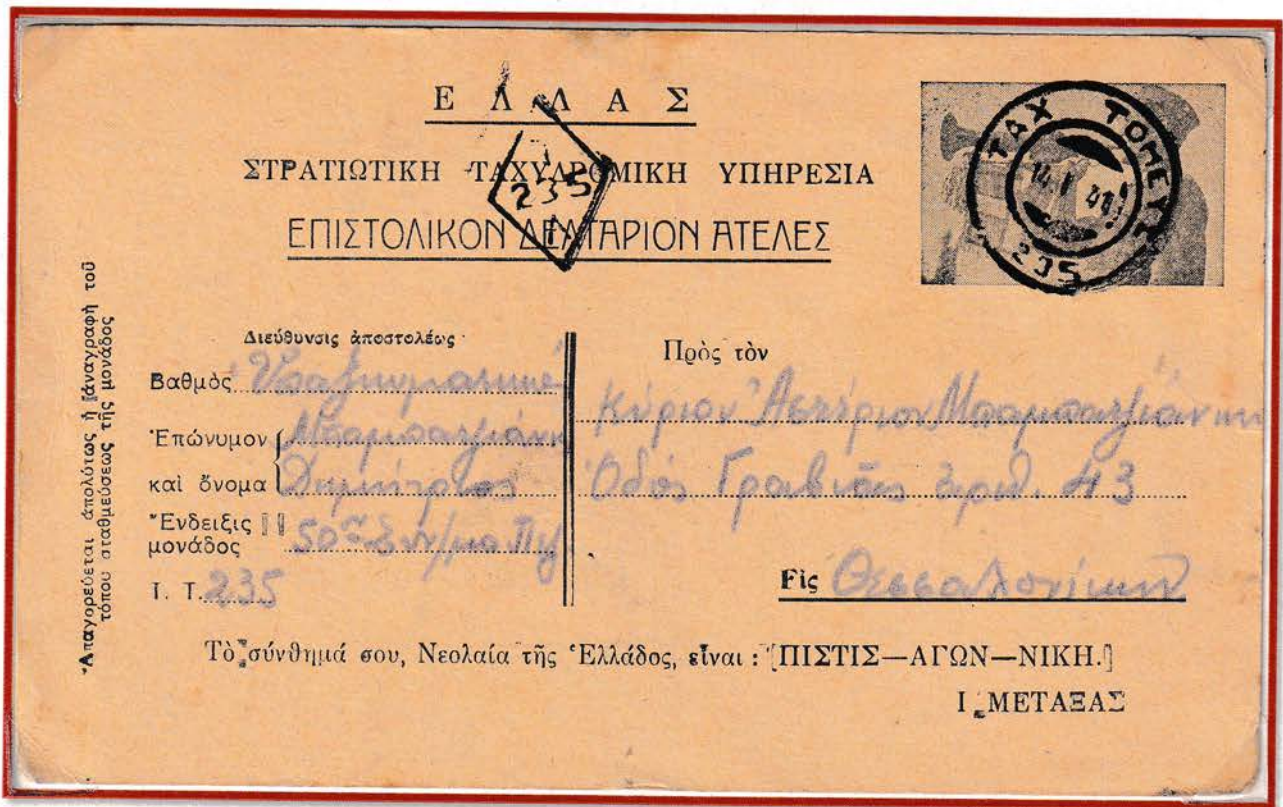 ΕΛΛΑΣ
ΣΤΡΑΤΙΩΤΙΚΗ ΤΑΧΥΔΡΟΜΙΚΗ ΥΠΗΡΕΣΙΑ
235
ΕΠΙΣΤΟΛΙΚΟΝ ΔΕΛΤΑΡΙΟΝ ΑΤΕΛΕΣ
ΤΑΧ ΤΟΜΕΥΣ
14. 41
235
Ἀπαγορεύεται ἀπολύτως ἡ ἀναγραφὴ τοῦ
τόπου σταθμεύσεως τῆς μονάδος
Διεύθυνσις ἀποστολέως
Βαθμὸς
Ἐπώνυμον Μπαμπατζιάνη
καὶ ὄνομα Δημήτριος
Ἔνδειξις
μονάδος 50ον Συν/μα Πζ
Ι. Τ. 235
Πρὸς τὸν
Κύριον Ἀστέριον Μπαμπατζιάνην
Ὁδός Γραβιᾶς ἀριθ. 43
Εἰς Θεσσαλονίκην
Τὸ σύνθημά σου, Νεολαία τῆς Ἑλλάδος, εἶναι : [ΠΙΣΤΙΣ—ΑΓΩΝ—ΝΙΚΗ.]
Ι. ΜΕΤΑΞΑΣ